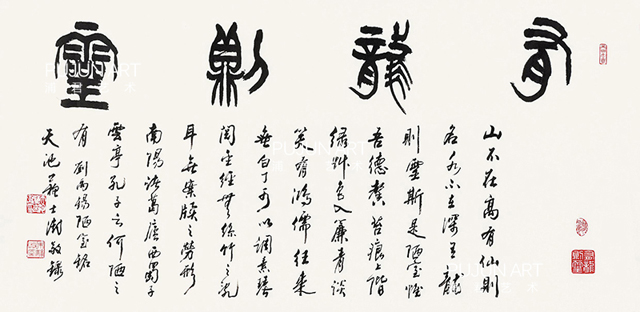 有龍則靈
山不在高有仙則
名水不在深有龍
則靈斯是陋室惟
吾德馨苔痕上階
綠草色入簾青談
笑有鴻儒往來
無白丁可以調素琴
閱金經無絲竹之亂
耳無案牘之勞形
南陽諸葛廬西蜀子
雲亭孔子云何陋之
有 劉禹錫陋室銘
天池蘇士澍敬錄
PUJUN ART
PUJUN ART